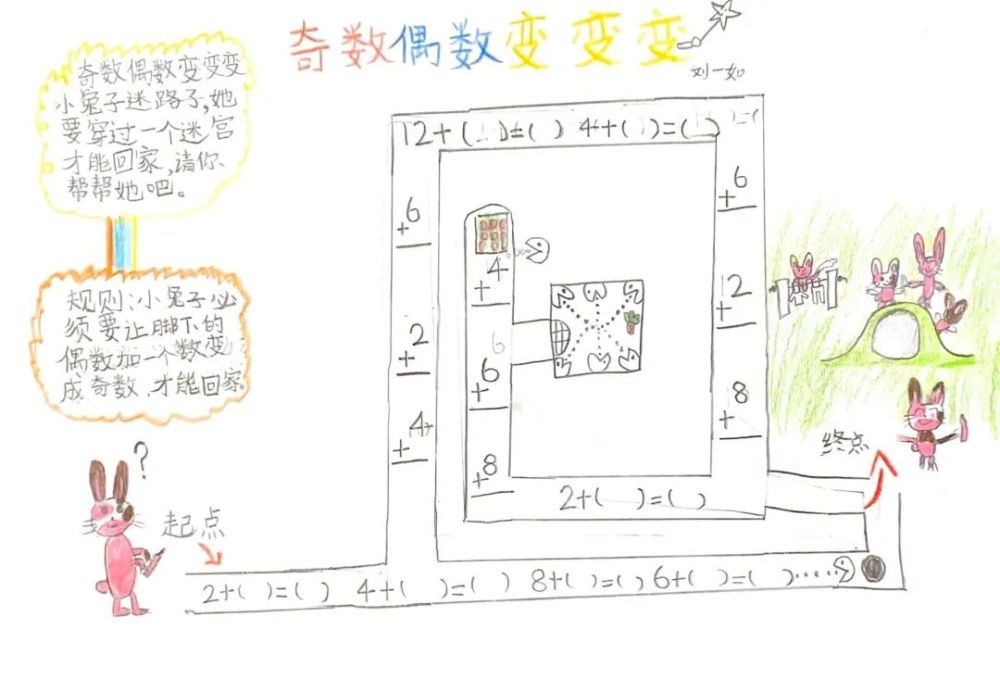 奇数偶数变变变
刘一如
奇数偶数变变变
小兔子迷路了,她
要穿过一个迷宫
才能回家,请你
帮帮她吧。
规则:小兔子必
须要让脚下的
偶数加一个数变
成奇数,才能回家。
?
起点
2+( )=( ) 4+( )=( ) 8+( )=( ) 6+( )=( )
4+
+
2
+
6
+
12+( )=( ) 4+( )=( ) =(
6
+
12
+
8
+
2+( )=( )
8
+
6
6
+
4
+
终点